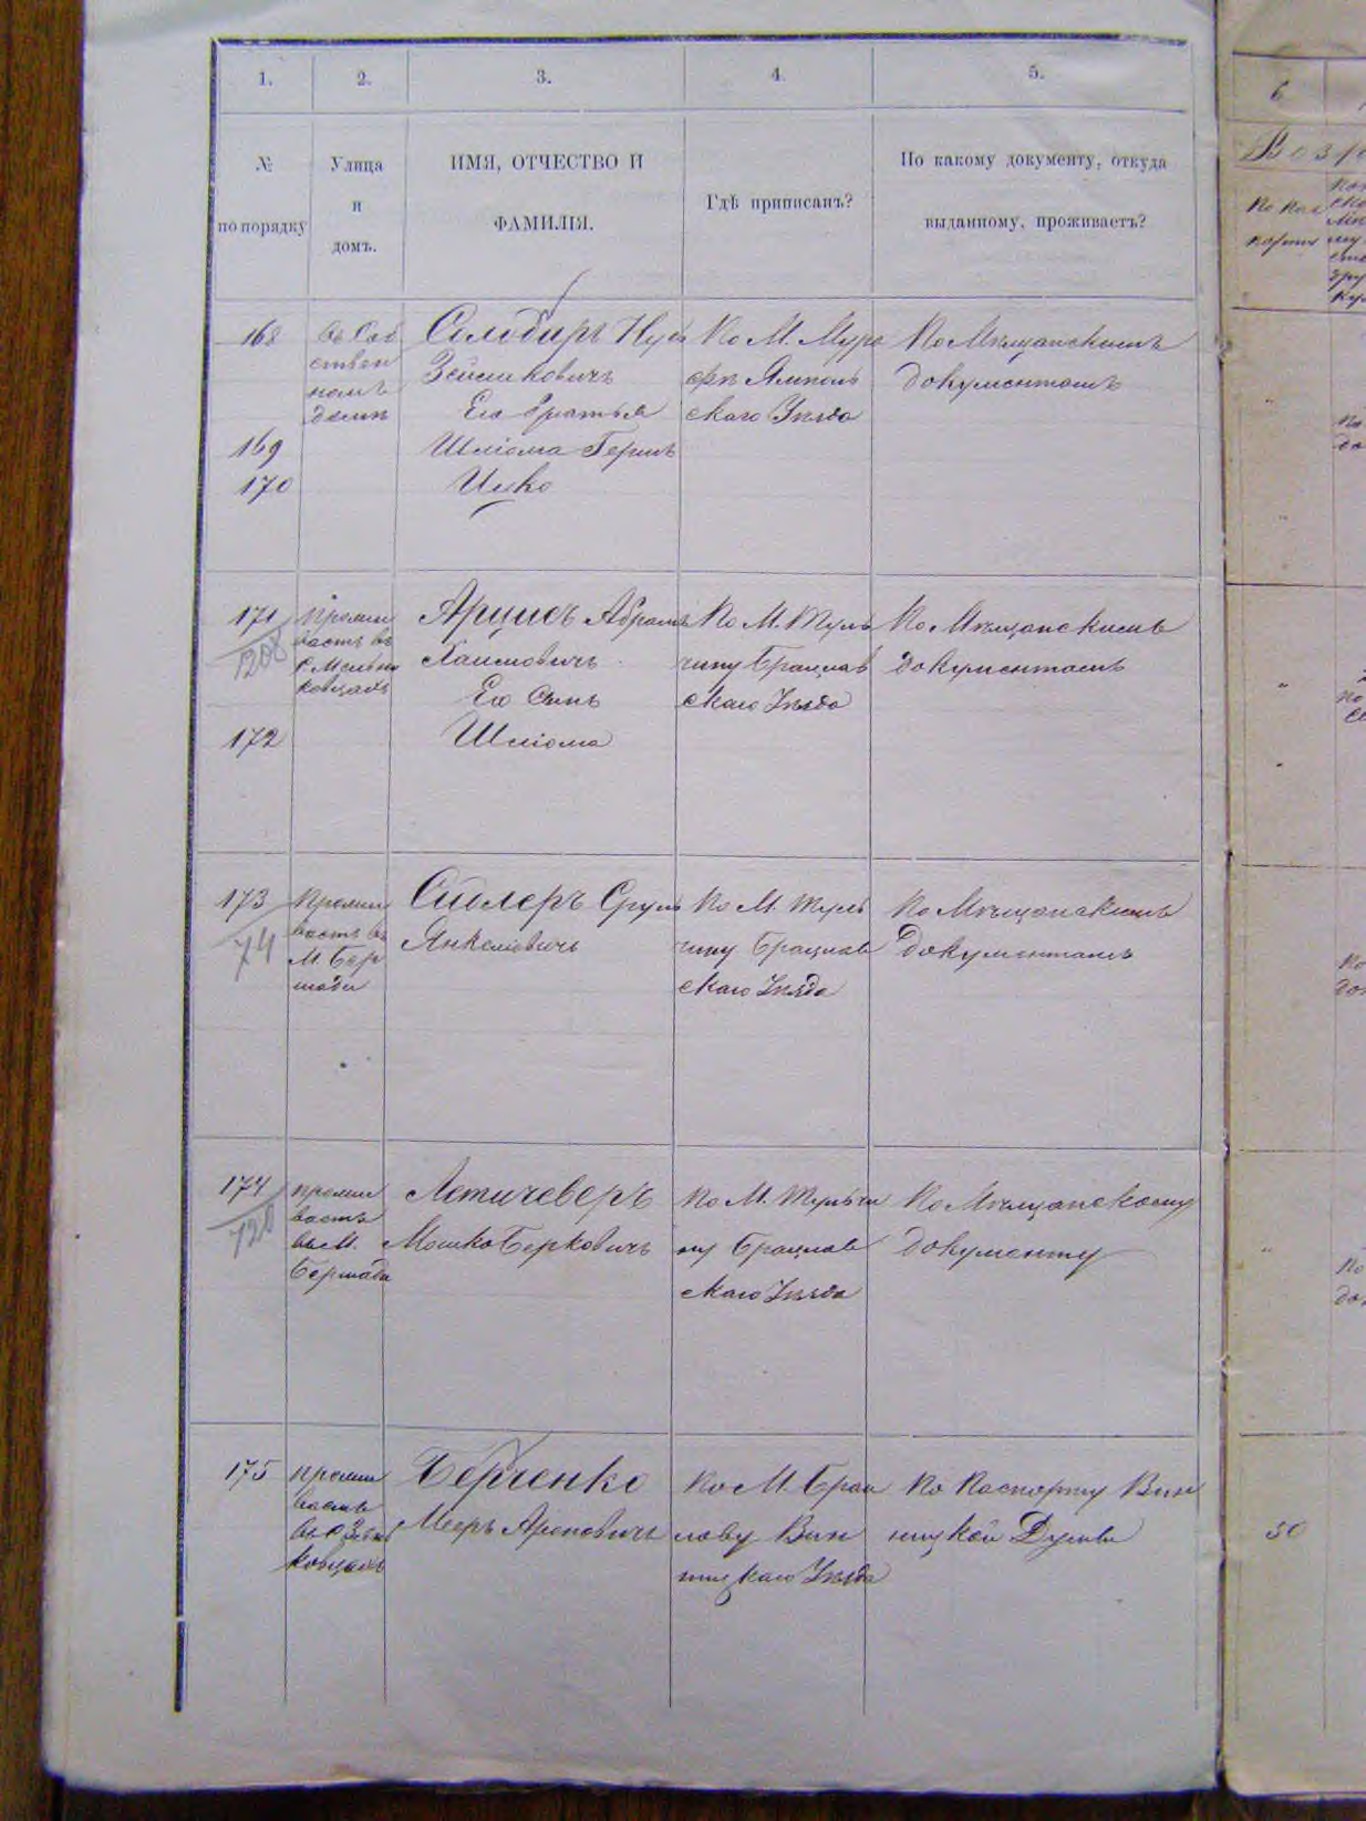 1. 2. 3. 4. 5.
№ по порядку
Улица и домъ.
ИМЯ, ОТЧЕСТВО И ФАМИЛІЯ.
Гдѣ приписанъ?
По какому документу, откуда выданному, проживаетъ?
168
Въ Соб
ствен
номъ
домѣ
Слободиръ
Зейликовичъ
Его братья
По М. Мура
фѣ Ямполь
скаго Уѣзда
По Мѣщанскимъ
документамъ
169
Шліома Герш
170
Ицко
171
208
Прожи
ваетъ въ
С Мельни
ковцахъ
Абрамъ
Хаимовичъ
Его Сынъ
По М. Туль
чину Брацлав
скаго Уѣзда
По Мѣщанскимъ
документамъ
172
Шліома
173
74
Прожи
ваетъ въ
М. Бер
шади
Сруль
Янкелевичъ
По М. Туль
чину Брацлав
скаго Уѣзда
По Мѣщанскимъ
документамъ
174
128
прожи
ваетъ
въ М.
Бершади
Летичеверъ
Мошко Берковичъ
По М. Тульчи
ну Брацлав
скаго Уѣзда
По Мѣщанскому
документу
175
прожи
ваетъ
ковцахъ
Берченко
Мееръ Ароновичъ
По М. Браи
лову Вин
ницкаго Уѣзда
По Паспорту Вин
ницкой Думы
6
50